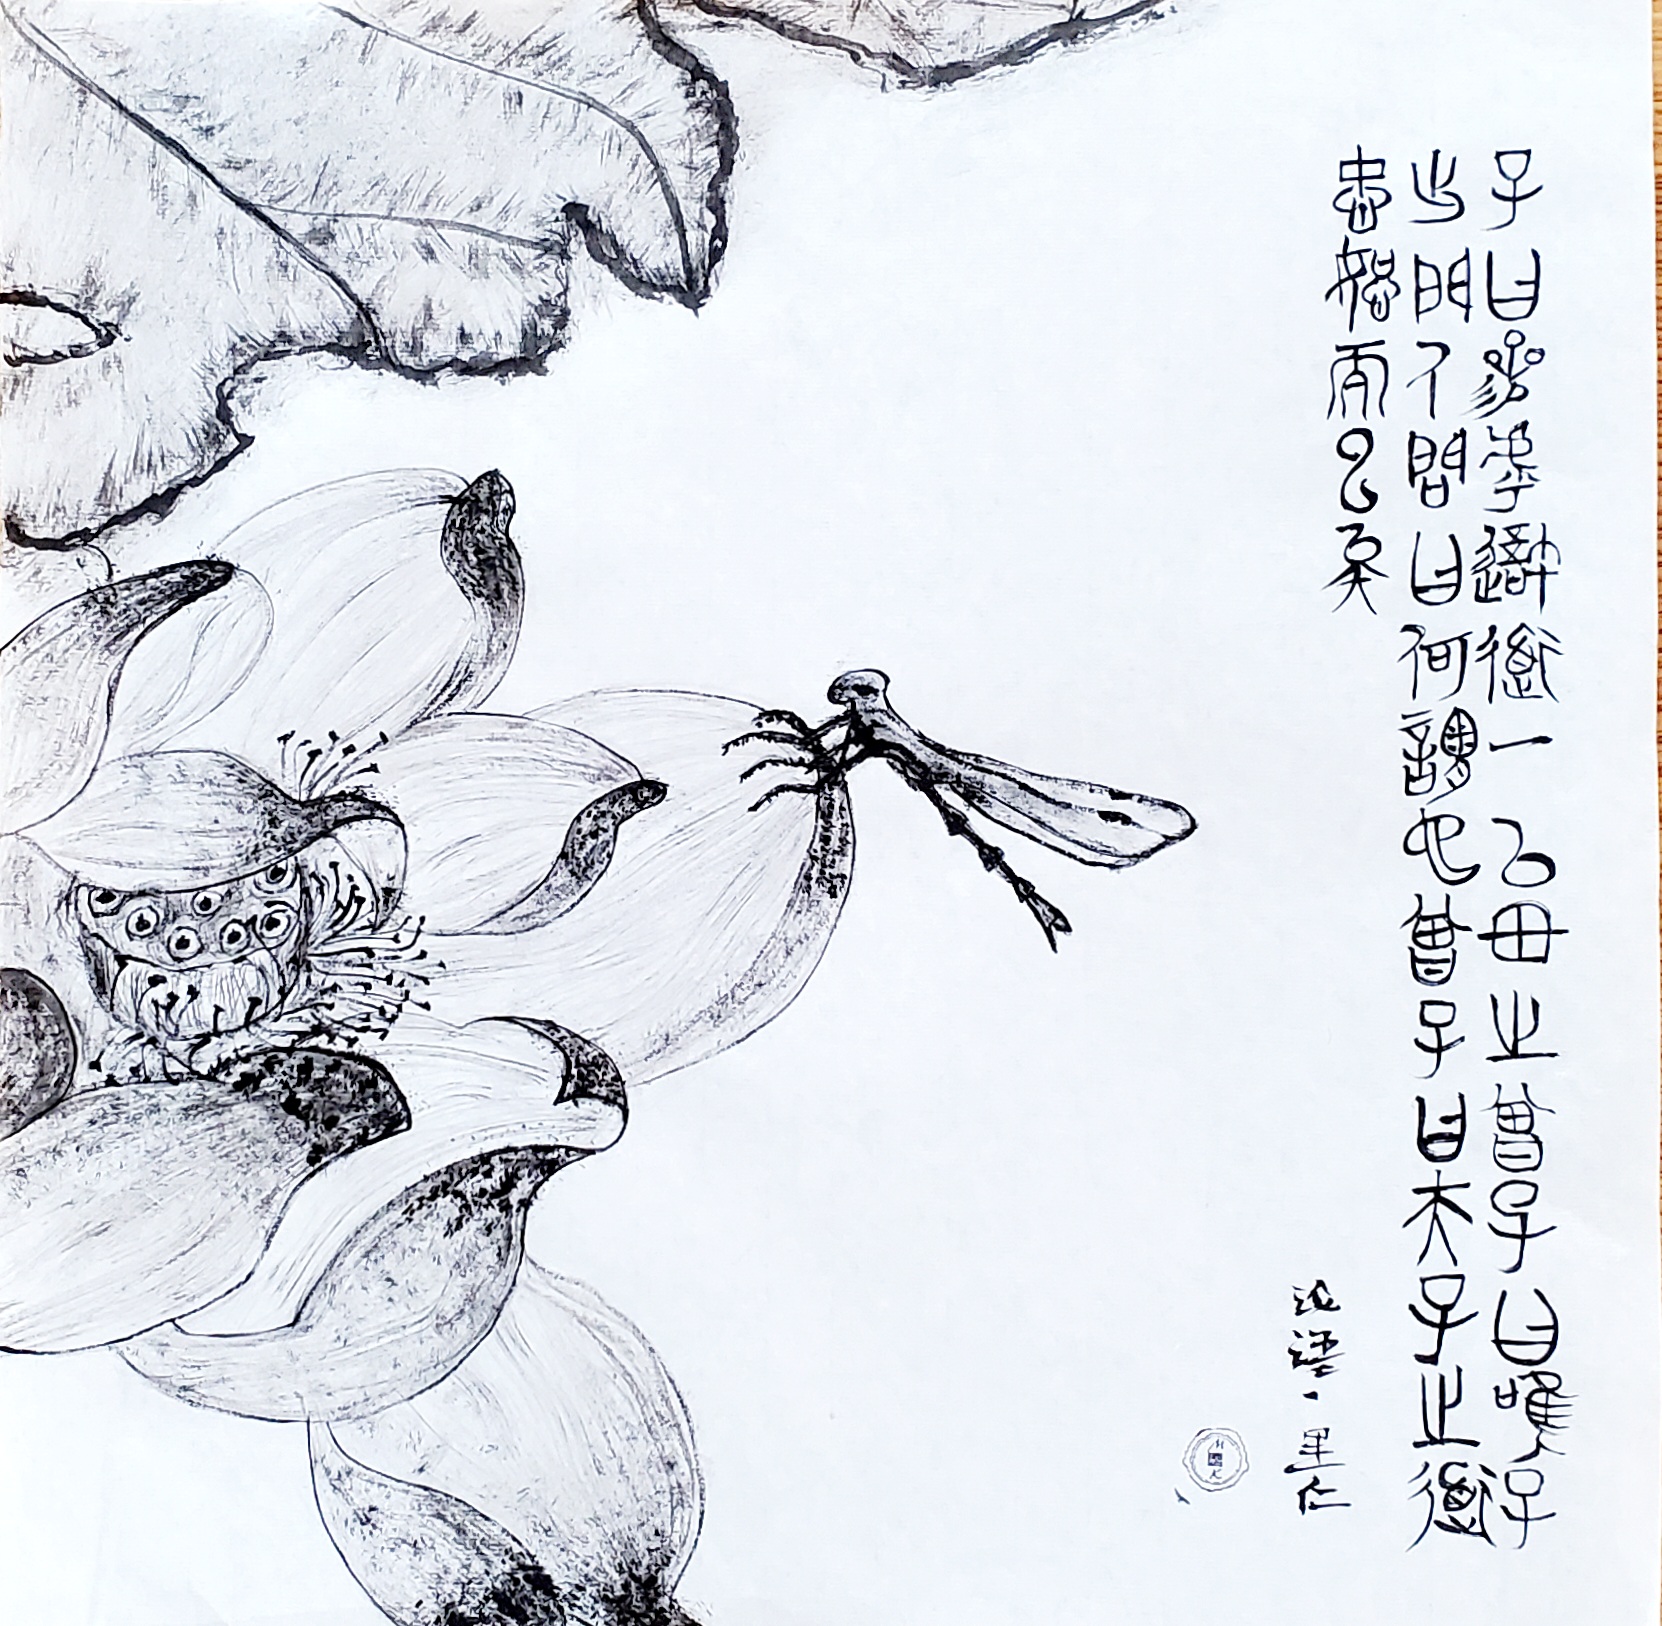 子曰參乎吾道一以毌之曾子曰唯子
出門人問曰何謂也曾子曰夫子之道
忠恕而已矣
论语·里仁